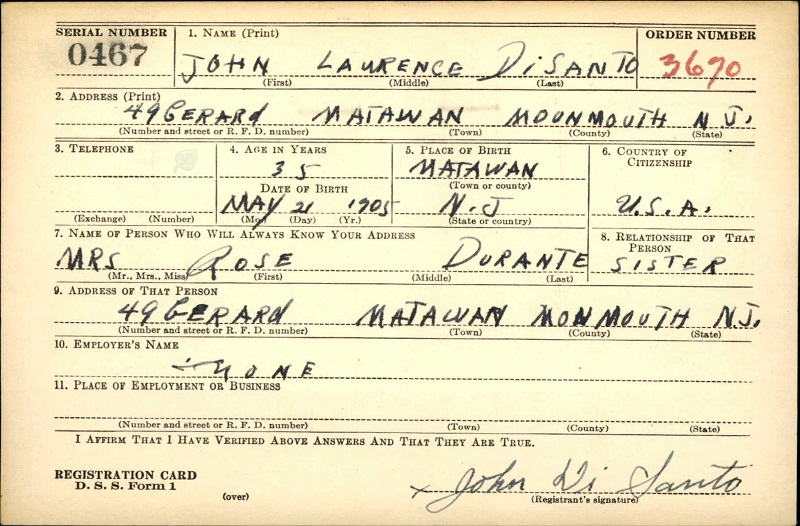 SERIAL NUMBER 1. NAME (Print) ORDER NUMBER
0467 JOHN LAURENCE DiSANTO 3670
(First) (Middle) (Last)
2. ADDRESS (Print)
49 GERARD MATAWAN MOUNMOUTH N.J.
(Number and street or R. F. D. number) (Town) (County) (State)
3. TELEPHONE 4. AGE IN YEARS 5. PLACE OF BIRTH 6. COUNTRY OF CITIZENSHIP
35 MATAWAN
DATE OF BIRTH (Town or county)
MAY 21 1905 N.J U.S.A.
(Exchange) (Number) (Mo.) (Day) (Yr.) (State or country)
7. NAME OF PERSON WHO WILL ALWAYS KNOW YOUR ADDRESS 8. RELATIONSHIP OF THAT PERSON
MRS ROSE DURANTE SISTER
(Mr., Mrs., Miss) (First) (Middle) (Last)
9. ADDRESS OF THAT PERSON
49 GERARD MATAWAN MONMOUTH N.J.
(Number and street or R. F. D. number) (Town) (County) (State)
10. EMPLOYER'S NAME
NONE
11. PLACE OF EMPLOYMENT OR BUSINESS
(Number and street or R. F. D. number) (Town) (County) (State)
I AFFIRM THAT I HAVE VERIFIED ABOVE ANSWERS AND THAT THEY ARE TRUE.
REGISTRATION CARD
D. S. S. Form 1 (over) x John Di Santo
(Registrant's signature)